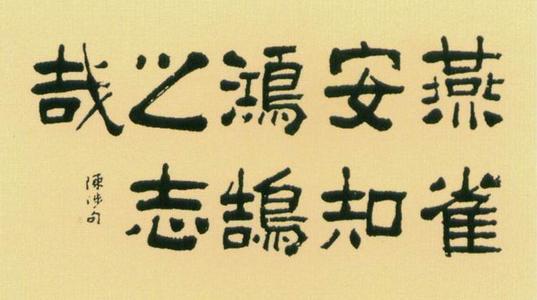 燕雀
安知
鴻鵠
之志
哉
陳涉句